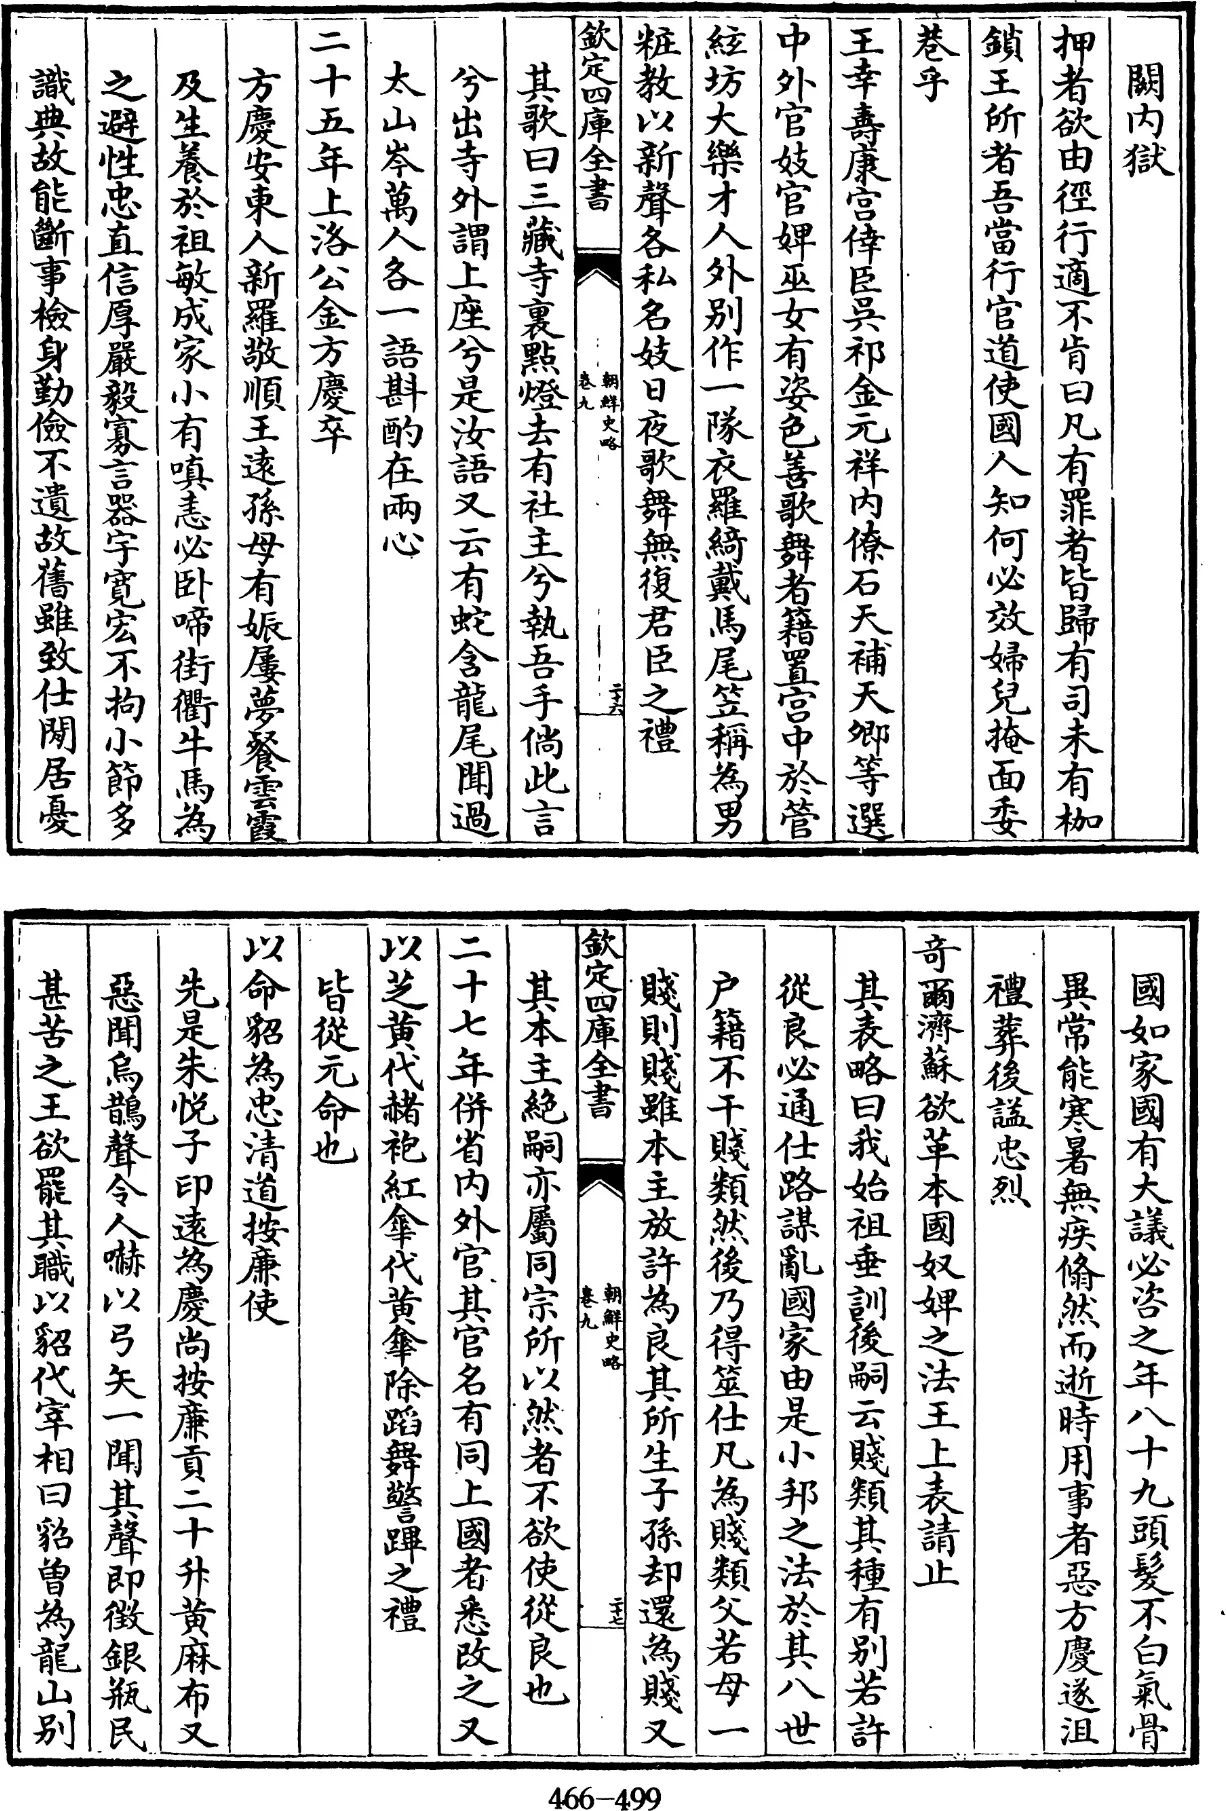 闕内獄
押者欲由徑行適不肯曰凡有罪者皆歸有司未有枷
鎖王所者吾當行官道使國人知何必效婦兒掩面委
巷乎
王幸壽康宫倖臣吳祁金元祥内僚石天補天卿等選
中外官妓官婢巫女有姿色善歌舞者籍置宫中於管
絃坊大樂才人外别作一隊衣羅綺戴馬尾笠稱為男
粧教以新聲各私名妓日夜歌舞無復君臣之禮
欽定四庫全書
朝鮮史略
卷九
二十六
其歌曰三藏寺裏點燈去有社主兮執吾手倘此言
兮出寺外謂上座兮是汝語又云有蛇含龍尾聞過
太山岑萬人各一語斟酌在兩心
二十五年上洛公金方慶卒
方慶安東人新羅敬順王遠孫母有娠屢夢餐雲霞
及生養於祖敏成家小有嗔恚必卧啼街衢牛馬為
之避性忠直信厚嚴毅寡言器宇寛宏不拘小節多
識典故能斷事檢身勤儉不遺故舊雖致仕閒居憂
國如家國有大議必咨之年八十九頭髮不白氣骨
異常能寒暑無疾翛然而逝時用事者惡方慶遂沮
禮葬後謚忠烈
奇爾濟蘇欲革本國奴婢之法王上表請止
其表略曰我始祖垂訓後嗣云賤類其種有别若許
從良必通仕路謀亂國家由是小邦之法於其八世
户籍不干賤類然後乃得筮仕凡為賤類父若母一
賤則賤雖本主放許為良其所生子孫却還為賤又
欽定四庫全書
朝鮮史略
卷九
二十七
其本主絶嗣亦屬同宗所以然者不欲使從良也
二十七年併省内外官其官名有同上國者悉改之又
以芝黄代赭袍紅傘代黄傘除蹈舞警蹕之禮
皆從元命也
以命貂為忠清道按廉使
先是朱悦子印遠為慶尚按廉貢二十升黄麻布又
惡聞烏鵲聲令人嚇以弓矢一聞其聲即徴銀瓶民
甚苦之王欲罷其職以貂代宰相曰貂曽為龍山别
466-499